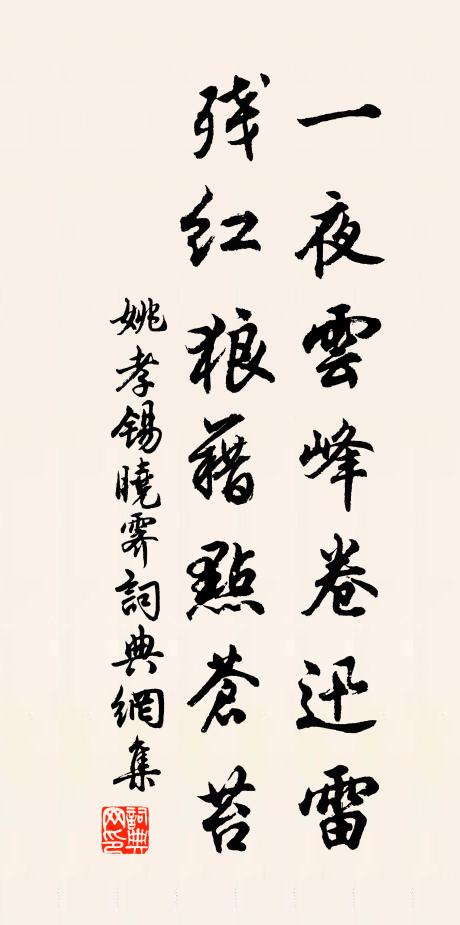 一夜雲峰卷迅雷
残红狼藉點蒼苔
姚孝锡曉霽詞典網集
詞典网印